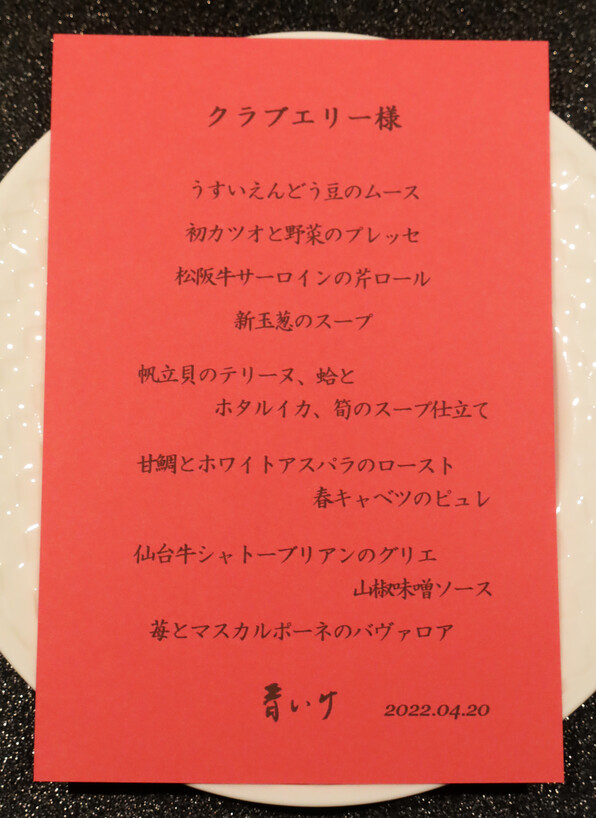 クラブエリー様
うすいえんどう豆のムース
初カツオと野菜のプレッセ
松阪牛サーロインの芹ロール
新玉葱のスープ
帆立貝のテリーヌ、蛤と
ホタルイカ、筍のスープ仕立て
甘鯛とホワイトアスパラのロースト
春キャベツのピュレ
仙台牛シャトーブリアンのグリエ
山椒味噌ソース
苺とマスカルポーネのバヴァロア
いけ 2022.04.20